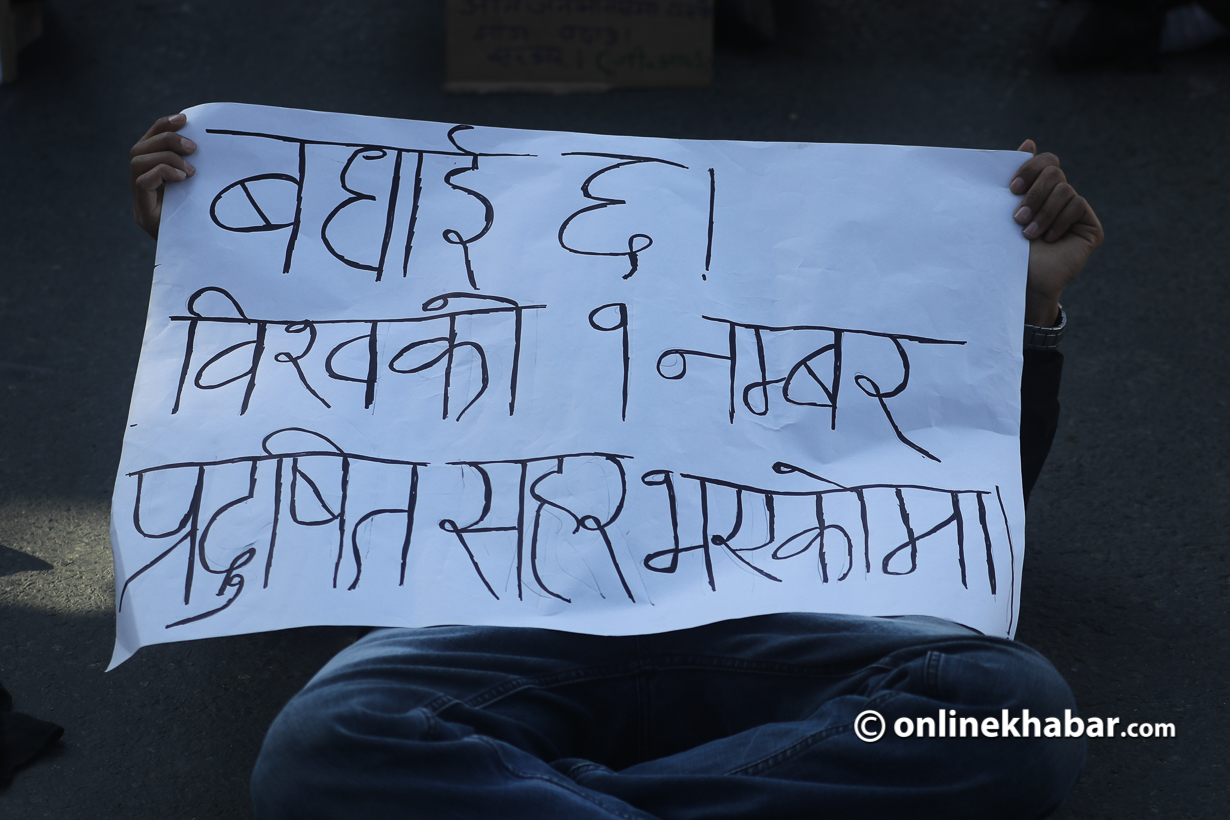 बधाई छ।
विश्वको १ नम्बर
प्रदुषित सहर भएकोमा।
© onlinekhabar.com